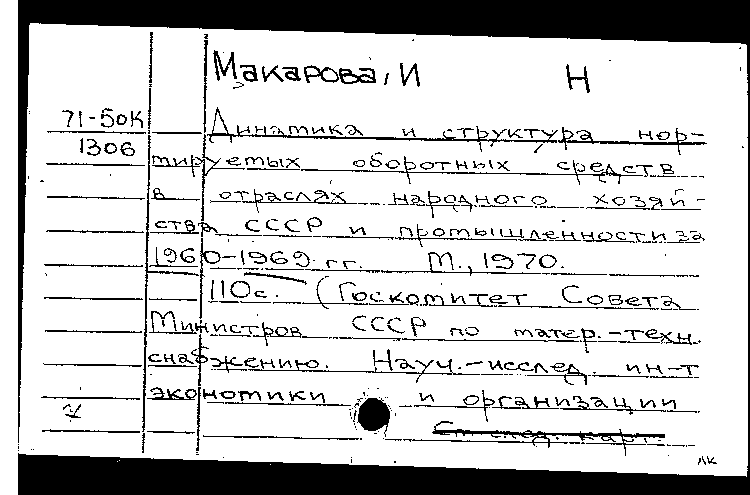 Макарова, И Н
71-50К
1306
Динамика и структура нор-
мируемых оборотных средств
в отраслях народного хозяй-
ства СССР и промышленности за
1960-1969 гг. М., 1970.
110с. (Госкомитет Совета
Министров СССР по матер.-техн.
снабжению. Науч.-исслед. ин-т
экономики и организации
См след. карт.
ЛК